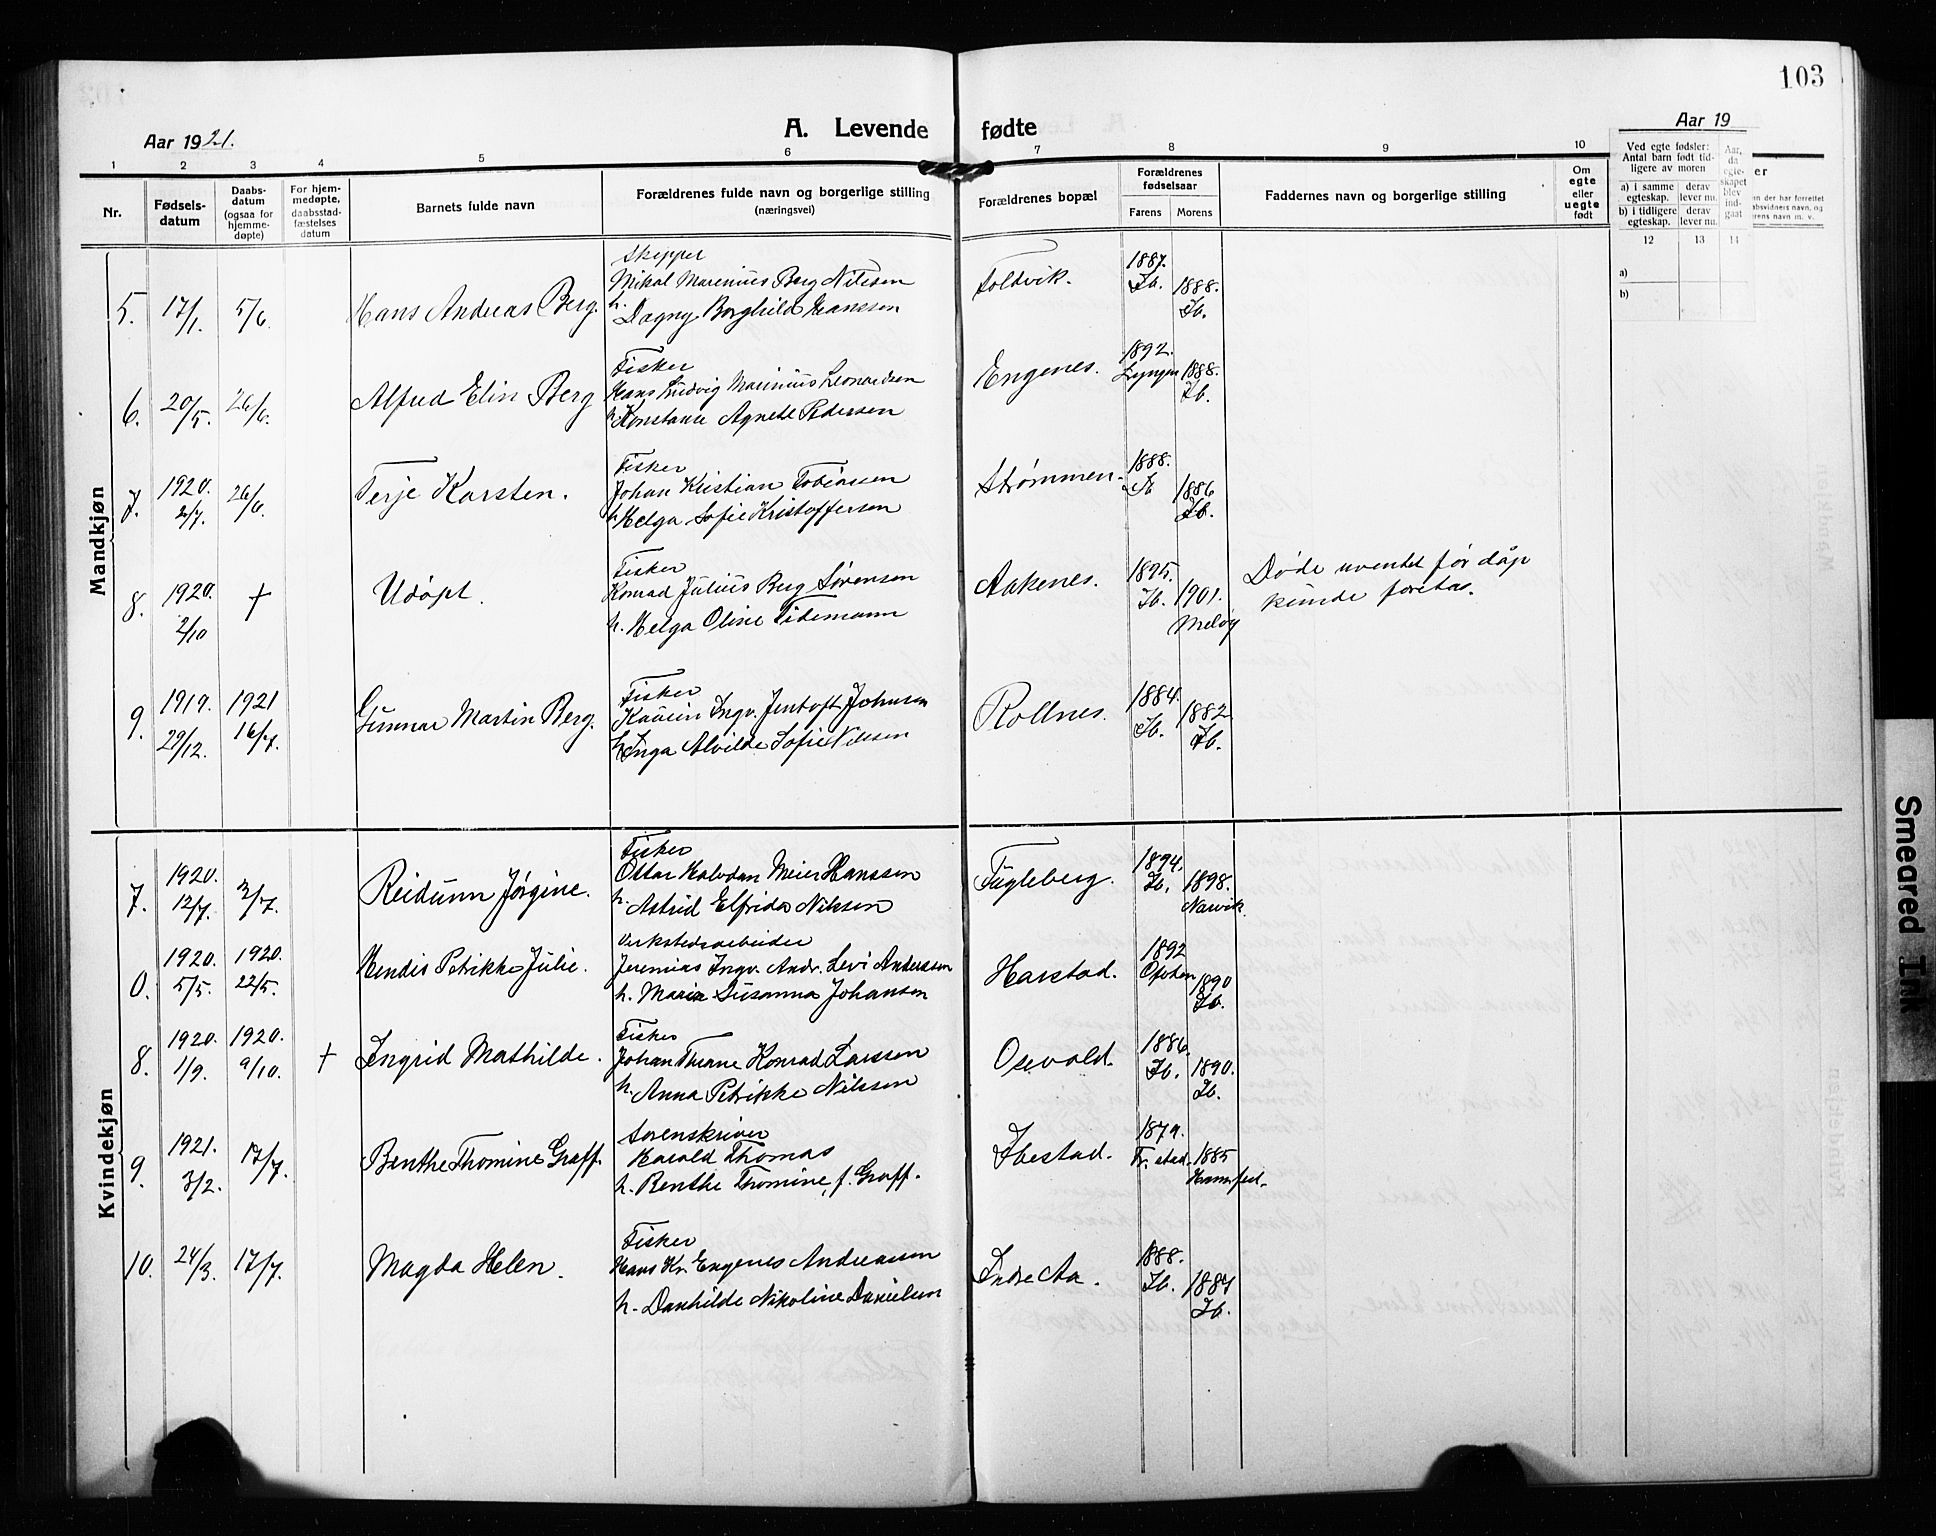 103
Aar 1921.
A. Levende fødte
Aar 19
1 2 3 4 5 6 7 8 9 10
Nr.
Fødsels-
datum
Daabs-
datum
(ogsaa for
hjemme-
døpte)
For hjem-
medøpte,
daabsstad-
fæstelses
datum
Barnets fulde navn
Forældrenes fulde navn og borgerlige stilling
(næringsvei)
Forældrenes bopæl
Forældrenes
fødselsaar
Farens Morens
Faddernes navn og borgerlige stilling
Om
egte
eller
uegte
født
Ved egte fødsler:
Antal barn født tid-
ligere av moren
a) i samme
egteskap.
derav
lever nu.
b) i tidligere
egteskap.
derav
lever nu.
Aar,
da
egte-
skapet
blev
ind-
gaat
12 13 14
a)
b)
Mandkjøn
Skipper
5. 17/1. 5/6. Hans Andreas Berg. Mikal Marenius Berg Nilsen
h. Dagny Borghild Hanssen
Foldvik. 1887. Ib. 1888. Ib.
Fisker
6. 20/5. 26/6. Alfred Elin Berg Hans Ludvig Marinius Leonardsen
h. Konstanse Agnete Pedersen
Engenes. 1892. Lyngen 1888. Ib.
Fisker
7. 1920. 2/7. 26/6. Terje Karsten. Johan Kristian Tobiassen
h. Helga Sofie Kristoffersen
Strømmen. 1888. Ib. 1886 Ib.
Fisker
8. 1920. 2/10 † Udøpt. Konrad Julius Berg Sørensen
h. Helga Oline Tidemann
Aakenes. 1895. Ib. 1901. Meløy
Døde uventet før dåp
kunde foretas.
Fisker
9. 1919. 29/12. 1921 16/7. Gunnar Martin Berg. Ingv. Jentoft Johnsen
h. Inga Alvilde Sofie Nilsen
Rollnes. 1884. Ib. 1882. Ib.
Kvindekjøn
Fisker
7. 1920. 12/7. 3/7. Reidunn Jørgine. Ottar Halvdan Meier Hanssen
h. Astrid Elfrida Nilssen
Fugleberg. 1894. Ib. 1898. Narvik.
Verkstedsarbeider
0. 1920. 5/5. 1920. 22/5. Hendis Petrikke Julie. Jeremias Ingv. Andr. Levi Anderssen
h. Maria Susanna Johansen
Harstad. 1892 Ofoten 1890 Ib.
Fisker
8. 1920. 1/9. 1920. 9/10. † Ingrid Mathilde. Johan Thrane Konrad Larssen
h. Anna Petrikke Nilssen
Osevold. 1886. Ib. 1890. Ib.
Sorenskriver
9. 1921. 3/2. 17/7. Benthe Thomine Graff. Harald Thomas
h. Benthe Thomine, f. Graff.
Ibestad. 1879. Fr. stad. 1885 Hammerfest.
Fisker
10. 24/3. 17/7. Magda Helen. Hans Kr. Engenes Andreassen
h. Danhilde Nikoline Danielsen
Indre Aa. 1888. Ib. 1887 Ib.
Smeared Ink